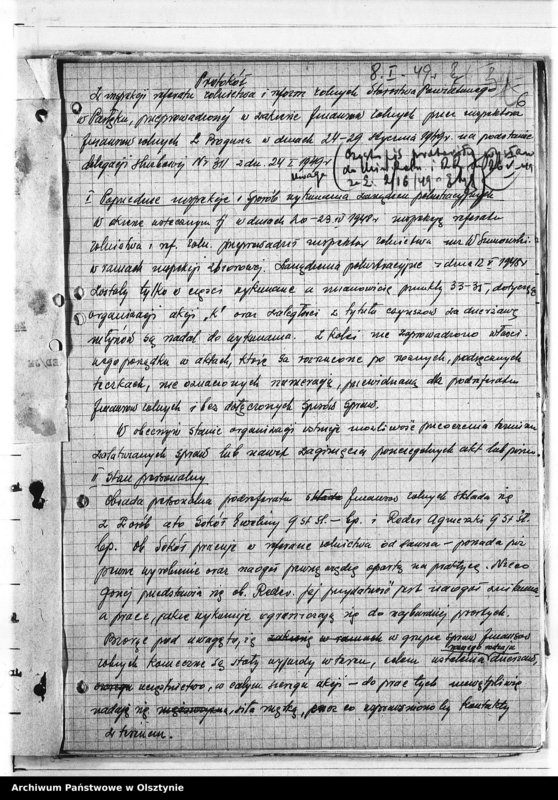 8. I - 49.
6
Protokół
z inspekcji referatu rolnictwa i reform rolnych Starostwa Powiatowego
w Pasłęku, przeprowadzonej w zakresie finansów rolnych przez inspektora
finansów rolnych L. w dniach 24-29 stycznia 1949 r. na podstawie
delegacji służbowej Nr 311 z dn. 24 I 1949 r.
uwaga
I Poprzednie inspekcje i sposób wykonania zarządzeń polustracyjnych
W okresie wstecznym tj w dniach 20-23 1948 r inspekcję referatu
rolnictwa i ref. roln. przeprowadził inspektor rolnictwa inż. W
w ramach inspekcji zbiorowej. Zarządzenia polustracyjne z dnia 12 1948 r
zostały tylko w części wykonane a mianowicie punkty 33-35, dotyczące
organizacji akcji „K" oraz zaległości z tytułu czynszów za dzierżawę
młynów są nadal do wykonania. Z kolei nie zaprowadzono właści-
wego porządku w aktach, które są rozrzucone po różnych, podręcznych
teczkach, nie oznaczonych numeracją, przewidzianą dla podreferatu
finansów rolnych i bez dołączonych spisów spraw.
W obecnym stanie organizacji istnieje możliwość przeoczenia terminu
załatwianych spraw lub nawet zaginięcia poszczególnych akt lub pism.
II Stan personalny
Obsada personalna podreferatu finansów rolnych składa się
z 2 osób a to Sokół Eweliny 9 st. sł. - bp. i Reder Agnieszki 9 st sł.
bp. Ob Sokół pracuje w referacie rolnictwa od dawna - posiada już
pewne wyrobienie oraz naogół pewną wiedzę opartą na praktyce. Nieco
gorzej przedstawia się ob. Reder. Jej przydatność jest naogół znikoma
a prace, jakie wykonuje ograniczają się do najbardziej prostych.
Biorąc pod uwagę to, że w grupie spraw finansów
rolnych konieczne są stałe wyjazdy w teren, celem ustalenia czynszów,
uczestnictwo, w całym szeregu akcji - do prac tych niewątpliwie
nadają się siła męska, co usprawniono by kontakty
z terenem.
Archiwum Państwowe w Olsztynie